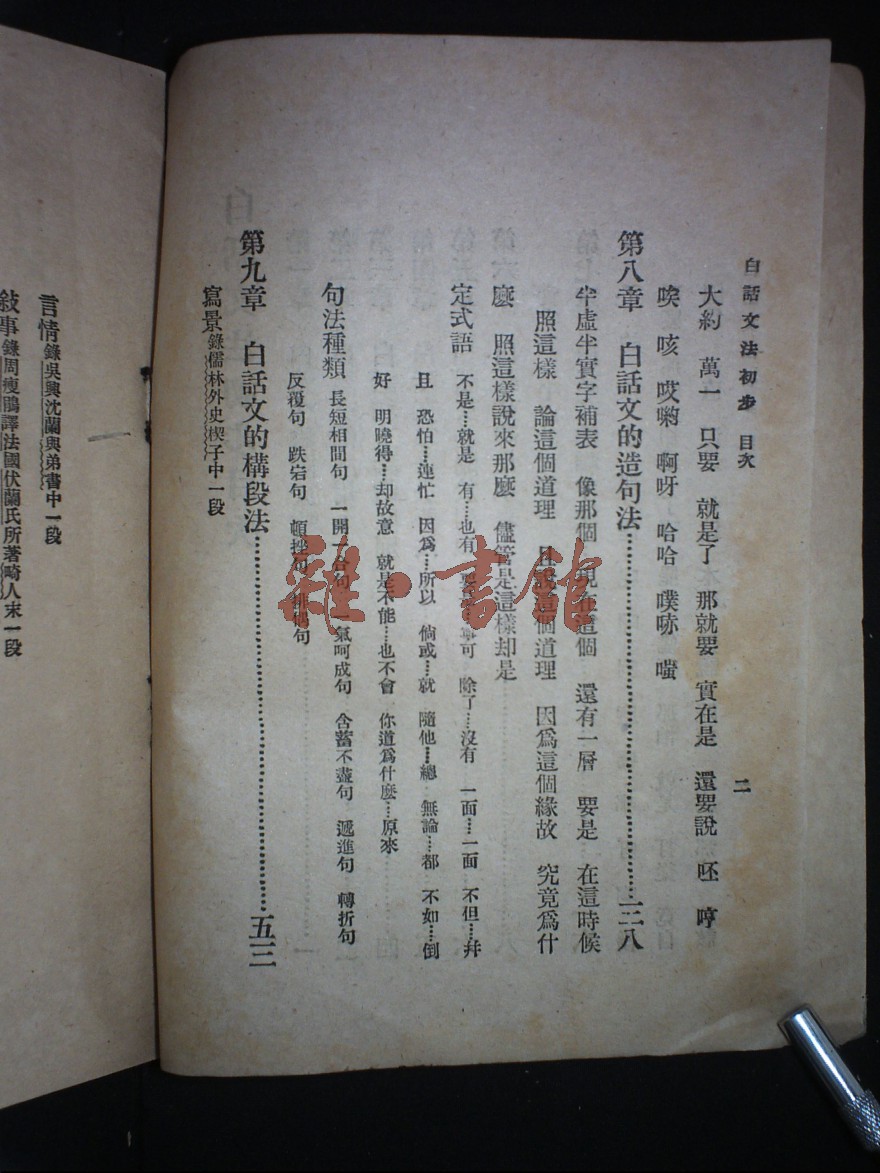 白話文法初步 目次 二
大約 萬一 只要 就是了 那就要 實在是 還要說 呸 哼
唉 咳 哎喲 啊呀 哈哈 噗哧 嗤
第八章 白話文的造句法……………………三八
半虛半實字補表 像那個 現在這個 還有一層 要是 在這時候
照這樣 論這個道理 且說這個道理 因爲這個緣故 究竟爲什
麼 照這樣說來那麼 儘管是這樣却是
定式語 不是……就是 有……也有 寧可 除了……沒有 一面……一面 不但……幷
且 恐怕……連忙 因爲……所以 倘或……就 隨他……總 無論……都 不如……倒
好 明曉得……却故意 就是不能……也不會 你道爲什麼……原來
句法種類 長短相間句 一開一合句 一氣呵成句 含蓄不盡句 遞進句 轉折句
反覆句 跌宕句 頓挫句 排偶句
第九章 白話文的構段法……………………五三
寫景 錄儒林外史楔子中一段
言情 錄吳興沈蘭與弟書中一段
敍事 錄周瘦鵑譯法國伏蘭氏所著畸人末一段
雜·書館